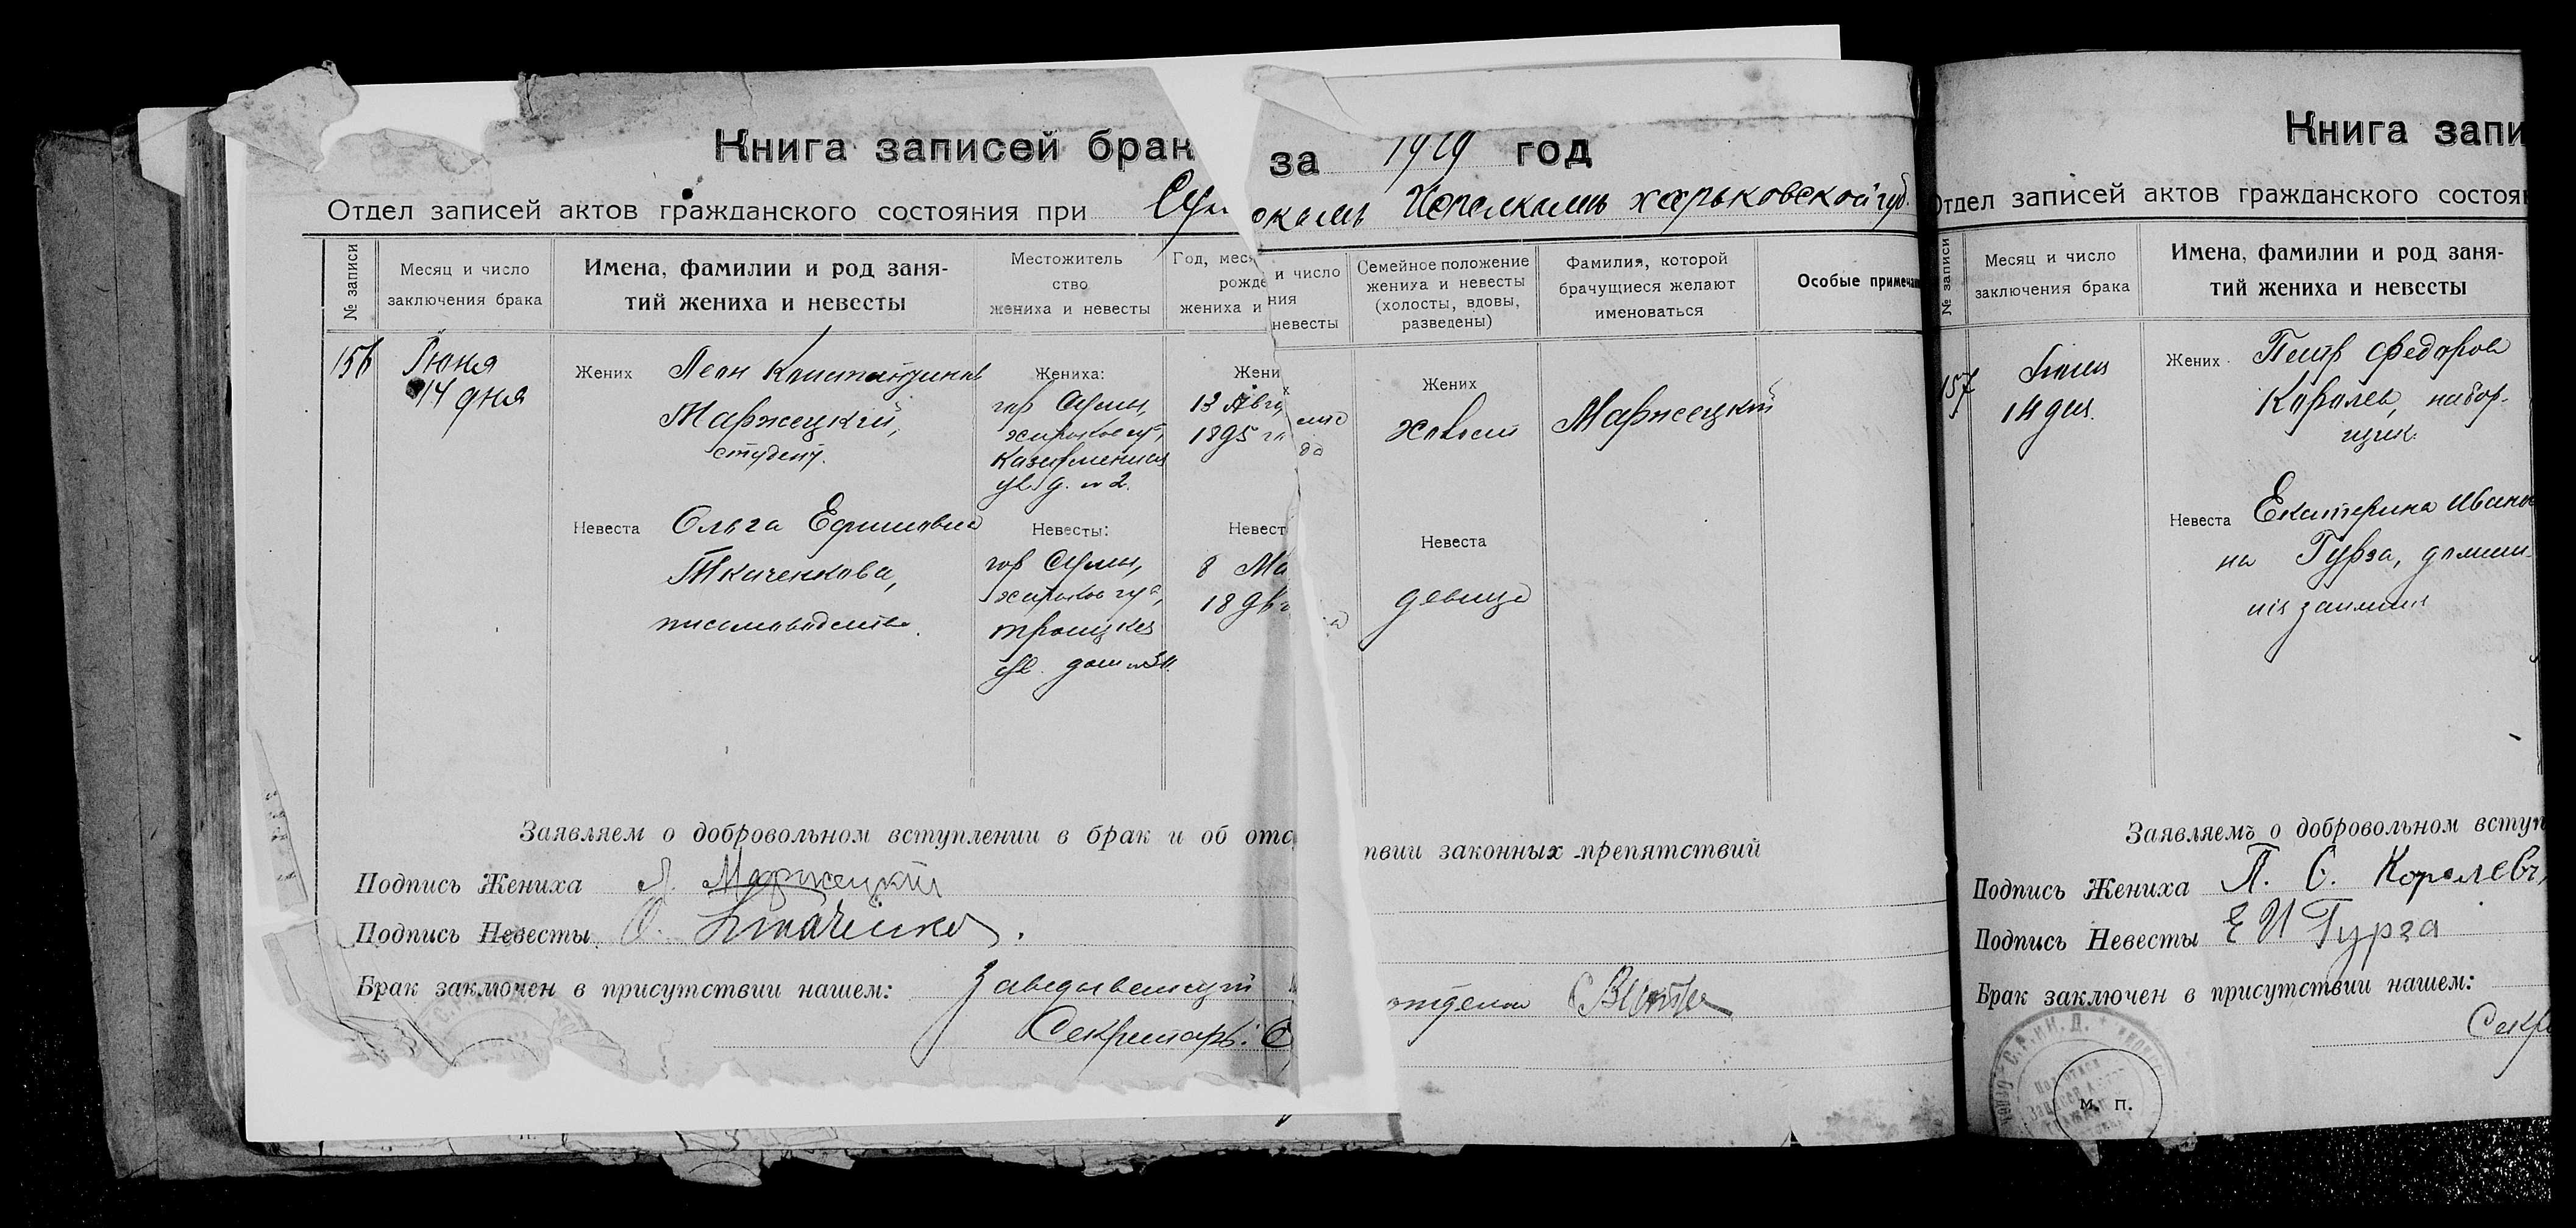 Книга записей брак за 1919 год
Отдел записей актов гражданского состояния при Сум ском Исполкоме Харьковской губ.
№ записи
Месяц и число
заключения брака
Имена, фамилии и род заня-
тий жениха и невесты
Местожитель
ство
жениха и невесты
Год, меся и число
рожде ния
жениха и невесты
Семейное положение
жениха и невесты
(холосты, вдовы,
разведены)
Фамилия, которой
брачущиеся желают
именоваться
Особые примечан
156
Июня
14 дня
Жених Леон Константинов
Маржецкий,
студент.
Жениха:
гор Сумы,
харьков губ,
Казарменная
ул. д. № 2.
Жених
13 Авгу ста
1895 го да
Жених
холост
Маржецкий
Невеста Ольга Ефимовна
Ткаченкова,
письмоводств.
Невесты:
гор Сумы,
харьков губ,
троицкая
ул. дом №
Невест
8 Ма
189
Невеста
девица
Заявляем о добровольном вступлении в брак и об отс твии законных препятствий
Подпись Жениха Л. Маржецкий
Подпись Невесты О. Ткаченко.
Брак заключен в присутствии нашем: Заведывающий отделом
Секретарь: С
Книга запи
Отдел записей актов гражданского состоян
№ записи
Месяц и число
заключения брака
Имена, фамилии и род заня-
тий жениха и невесты
157
Июня
14 дня.
Жених Петр Федоров
Королев, набор-
щик.
Невеста Екатерина Иванов
на Гурза, домаш-
нія занятия
Заявляемъ о добровольном вступ
Подпись Жениха П. Ѳ. Королевъ
Подпись Невесты Е И Гурза
Брак заключен в присутствии нашем:
Секре
м. п.